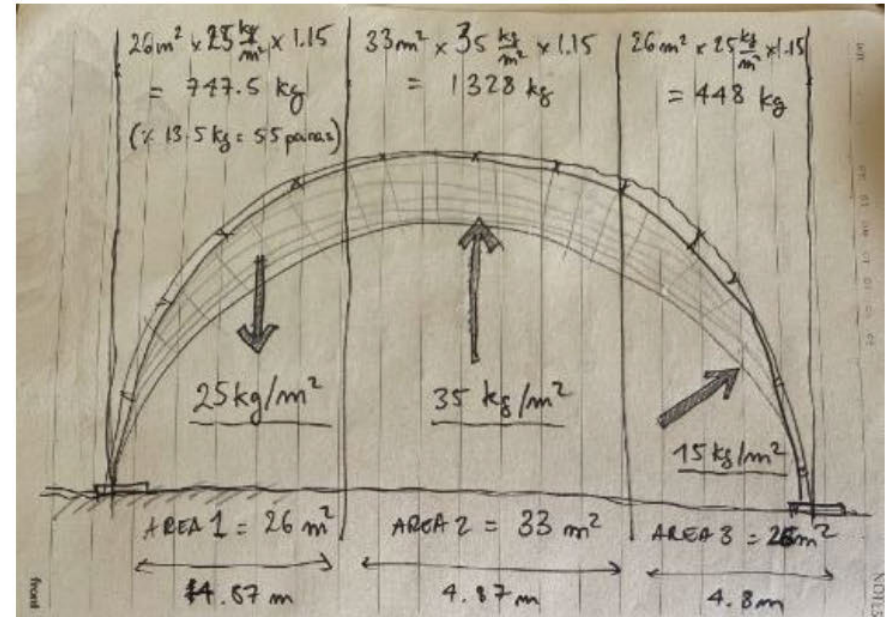 26m² x 25 kg/m² x 1.15
= 747.5 kg
(% 13.5 kg =
33m² x 35 kg/m² x 1.15
= 1328 kg
26m² x 25 kg/m² x 1.15
= 448 kg
25kg/m²
35 kg/m²
15 kg/m²
AREA 1 = 26 m²
AREA 2 = 33 m²
AREA 3 = 26m²
4.87 m
4.87 m
4.8m
front
NOTES